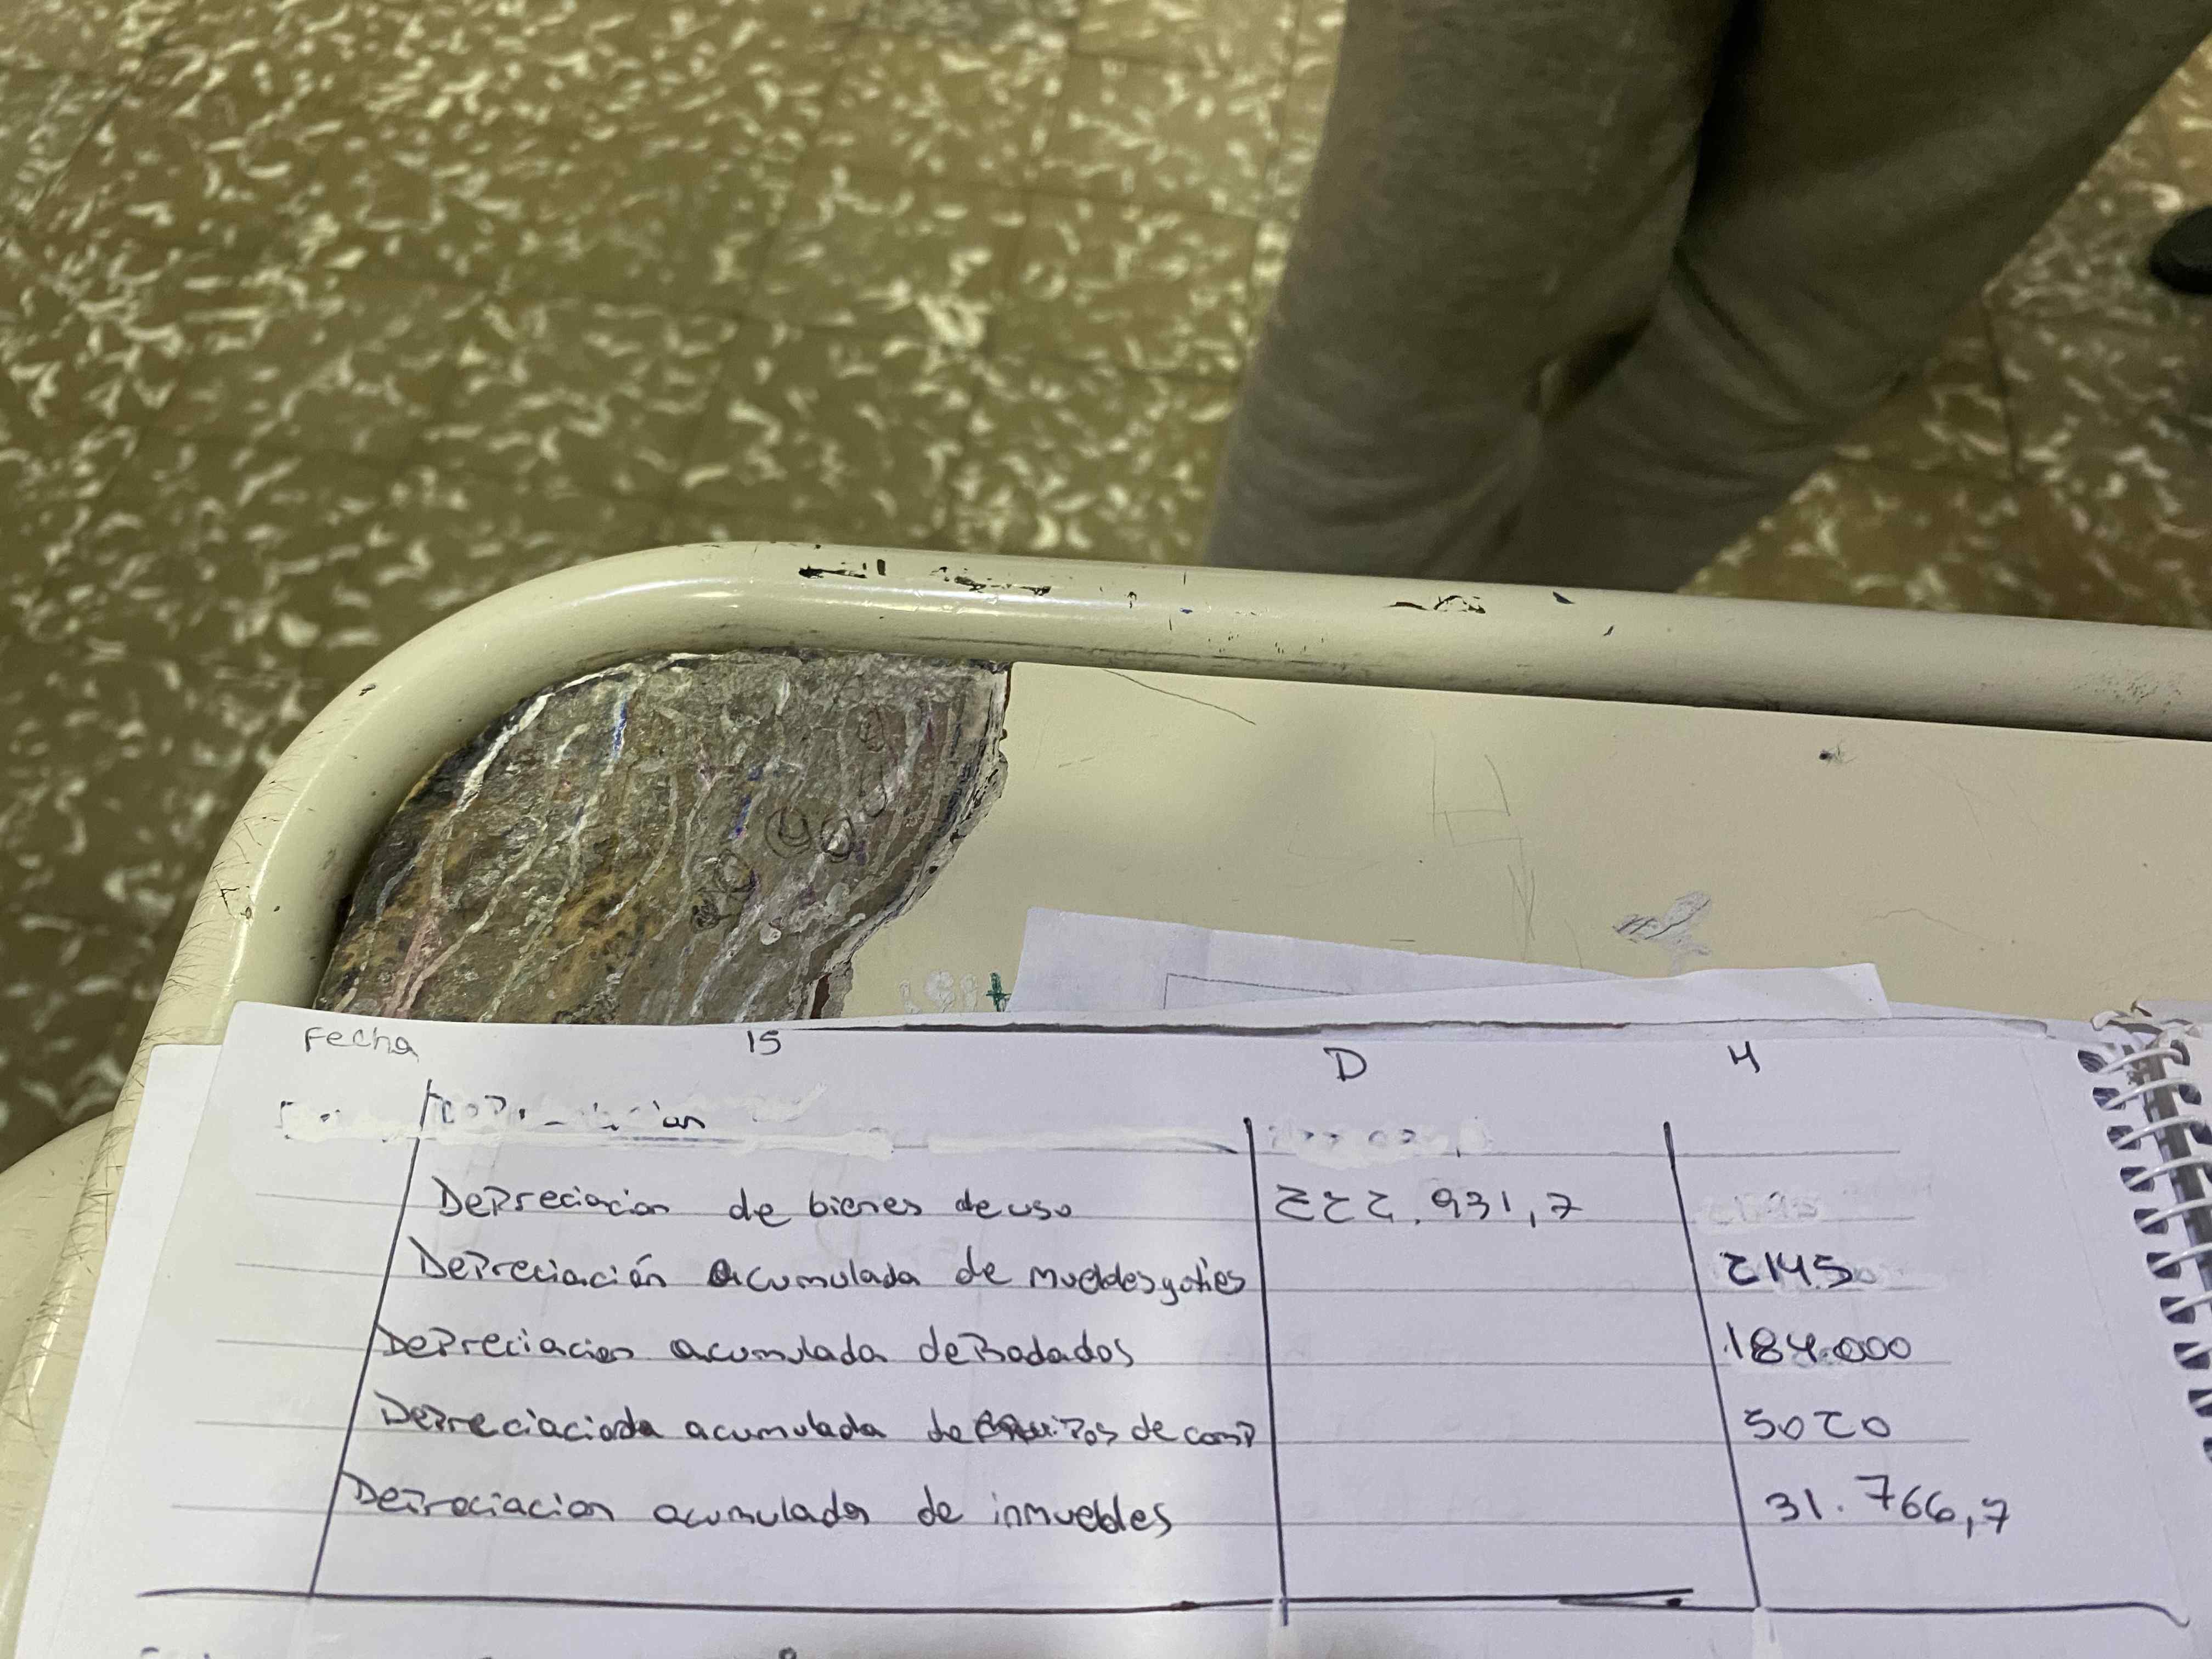 Fecha 15 D H
Depreciacion de bienes de uso 222.931,7
Depreciación acumulada de mueblesyutiles 2145
Depreciacion acumulada deRodados 184.000
acumulada de de comp 5020
Depreciacion acumulada de inmuebles 31.766,7